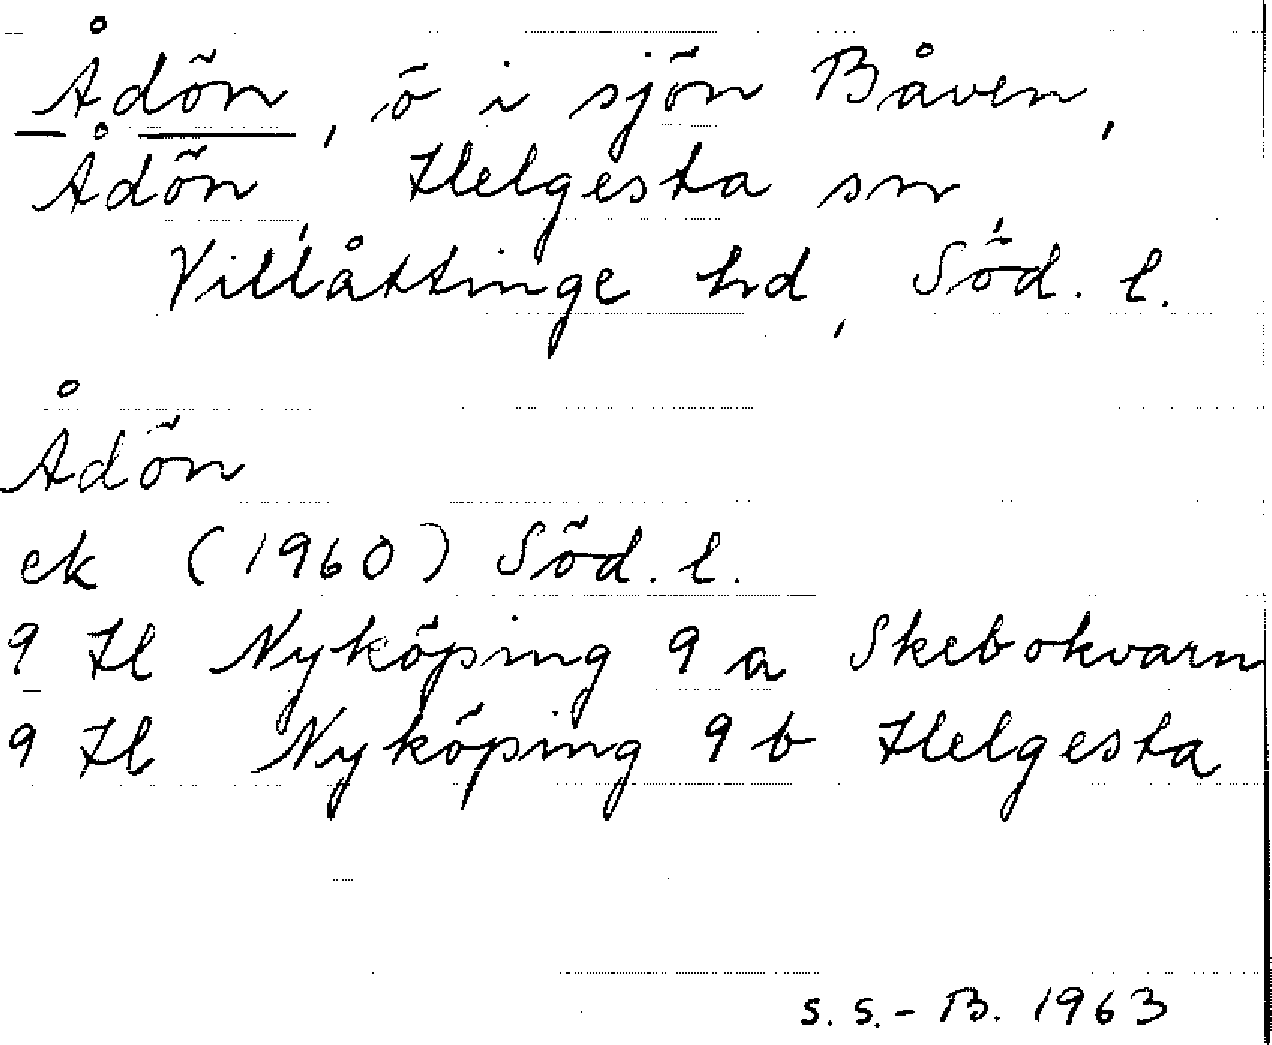 Ådön, ö i sjön Båven,
Ådön, Helgesta sn,
Villåttinge hd, Söd. l.
Ådön
ek (1960) Söd. l.
9 H Nyköping 9 a Skebokvarn
9 H Nyköping 9 b Helgesta
S. S.-B. 1963